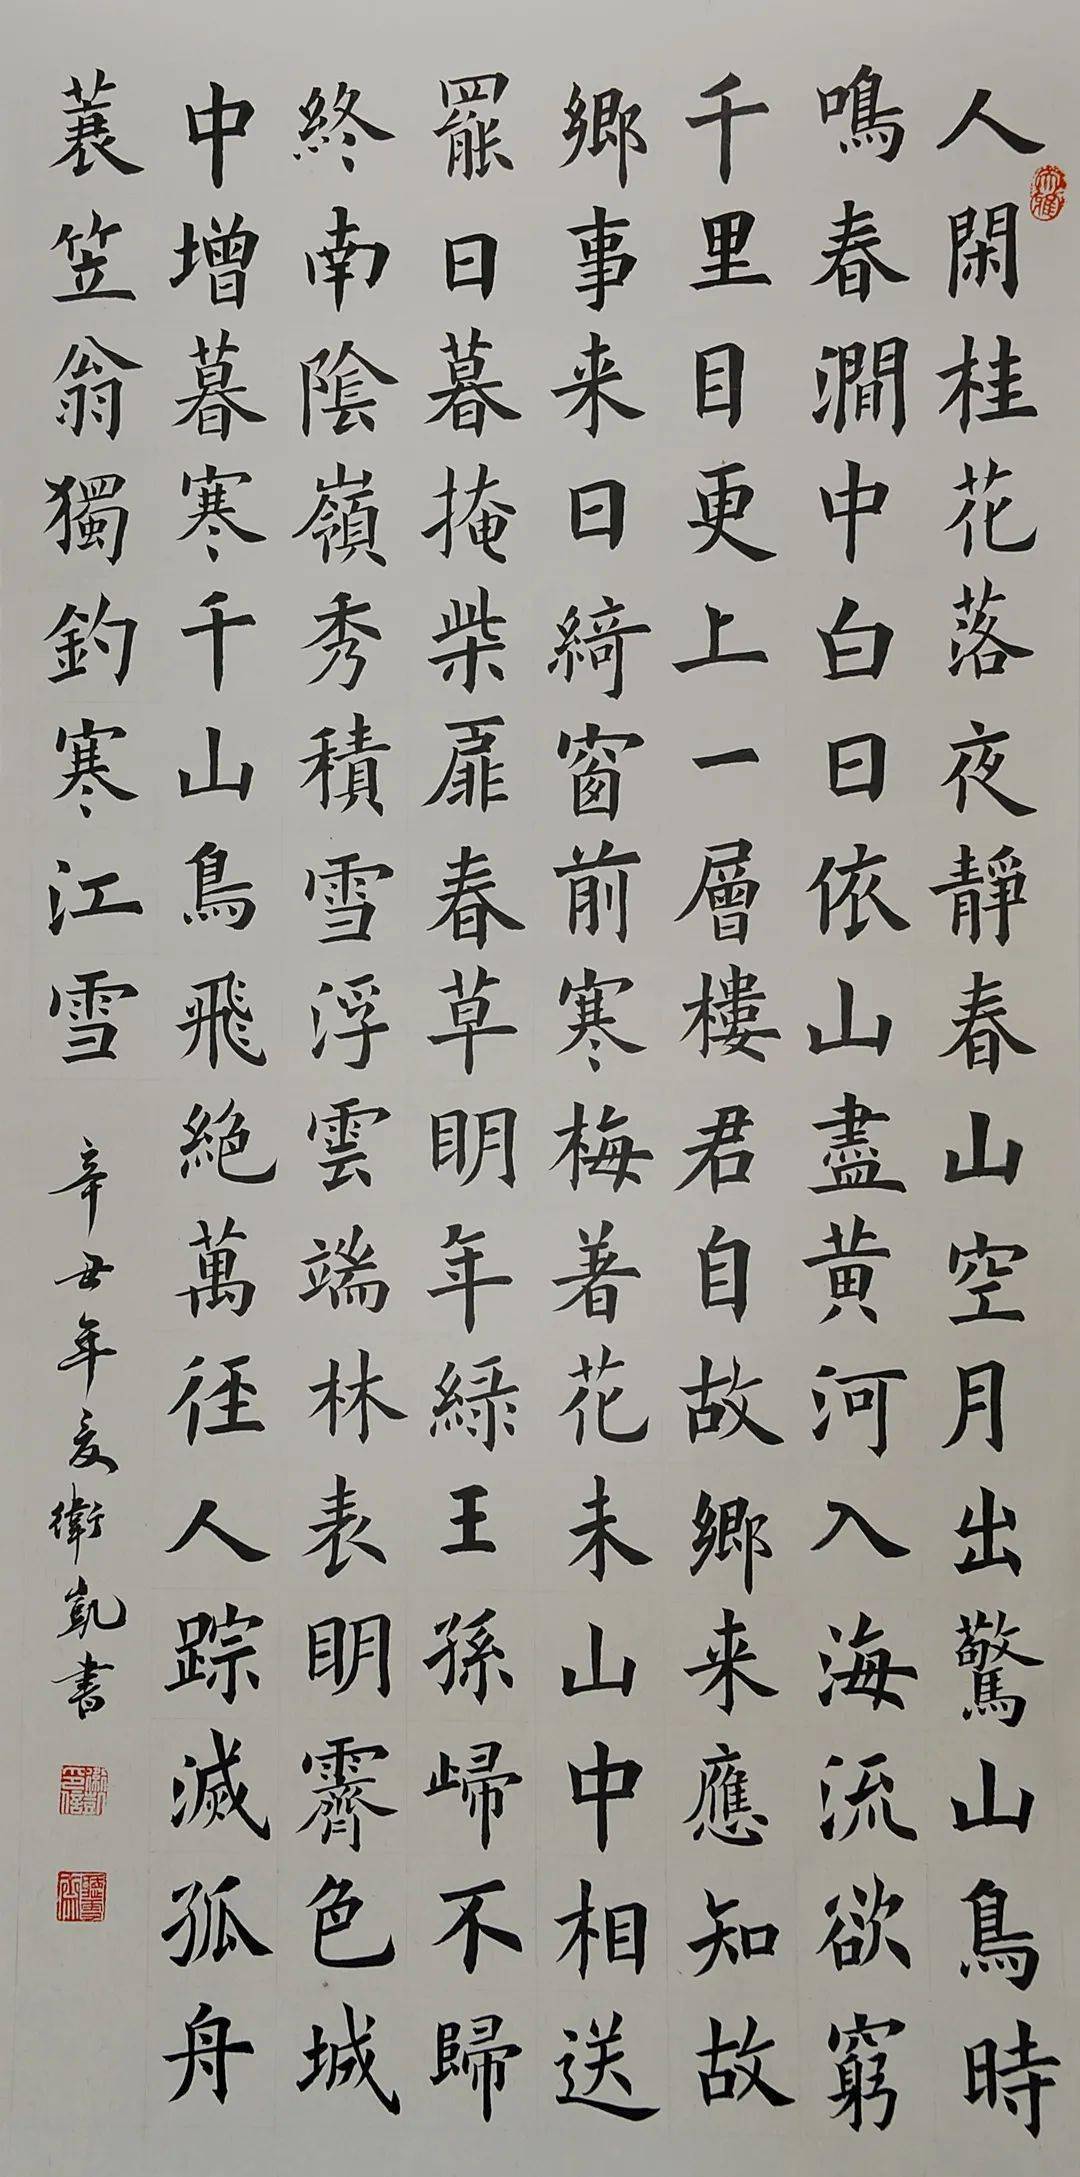 人閑桂花落夜靜春山空月出驚山鳥時
鳴春澗中白日依山盡黃河入海流欲窮
千里目更上一層樓君自故鄉来應知故
鄉事来日綺窗前寒梅著花未山中相送
罷日暮掩柴扉春草明年綠王孫歸不歸
終南陰嶺秀積雪浮雲端林表明霽色城
中增暮寒千山鳥飛絕萬徑人踪滅孤舟
蓑笠翁獨釣寒江雪
辛丑年夏衛凱書